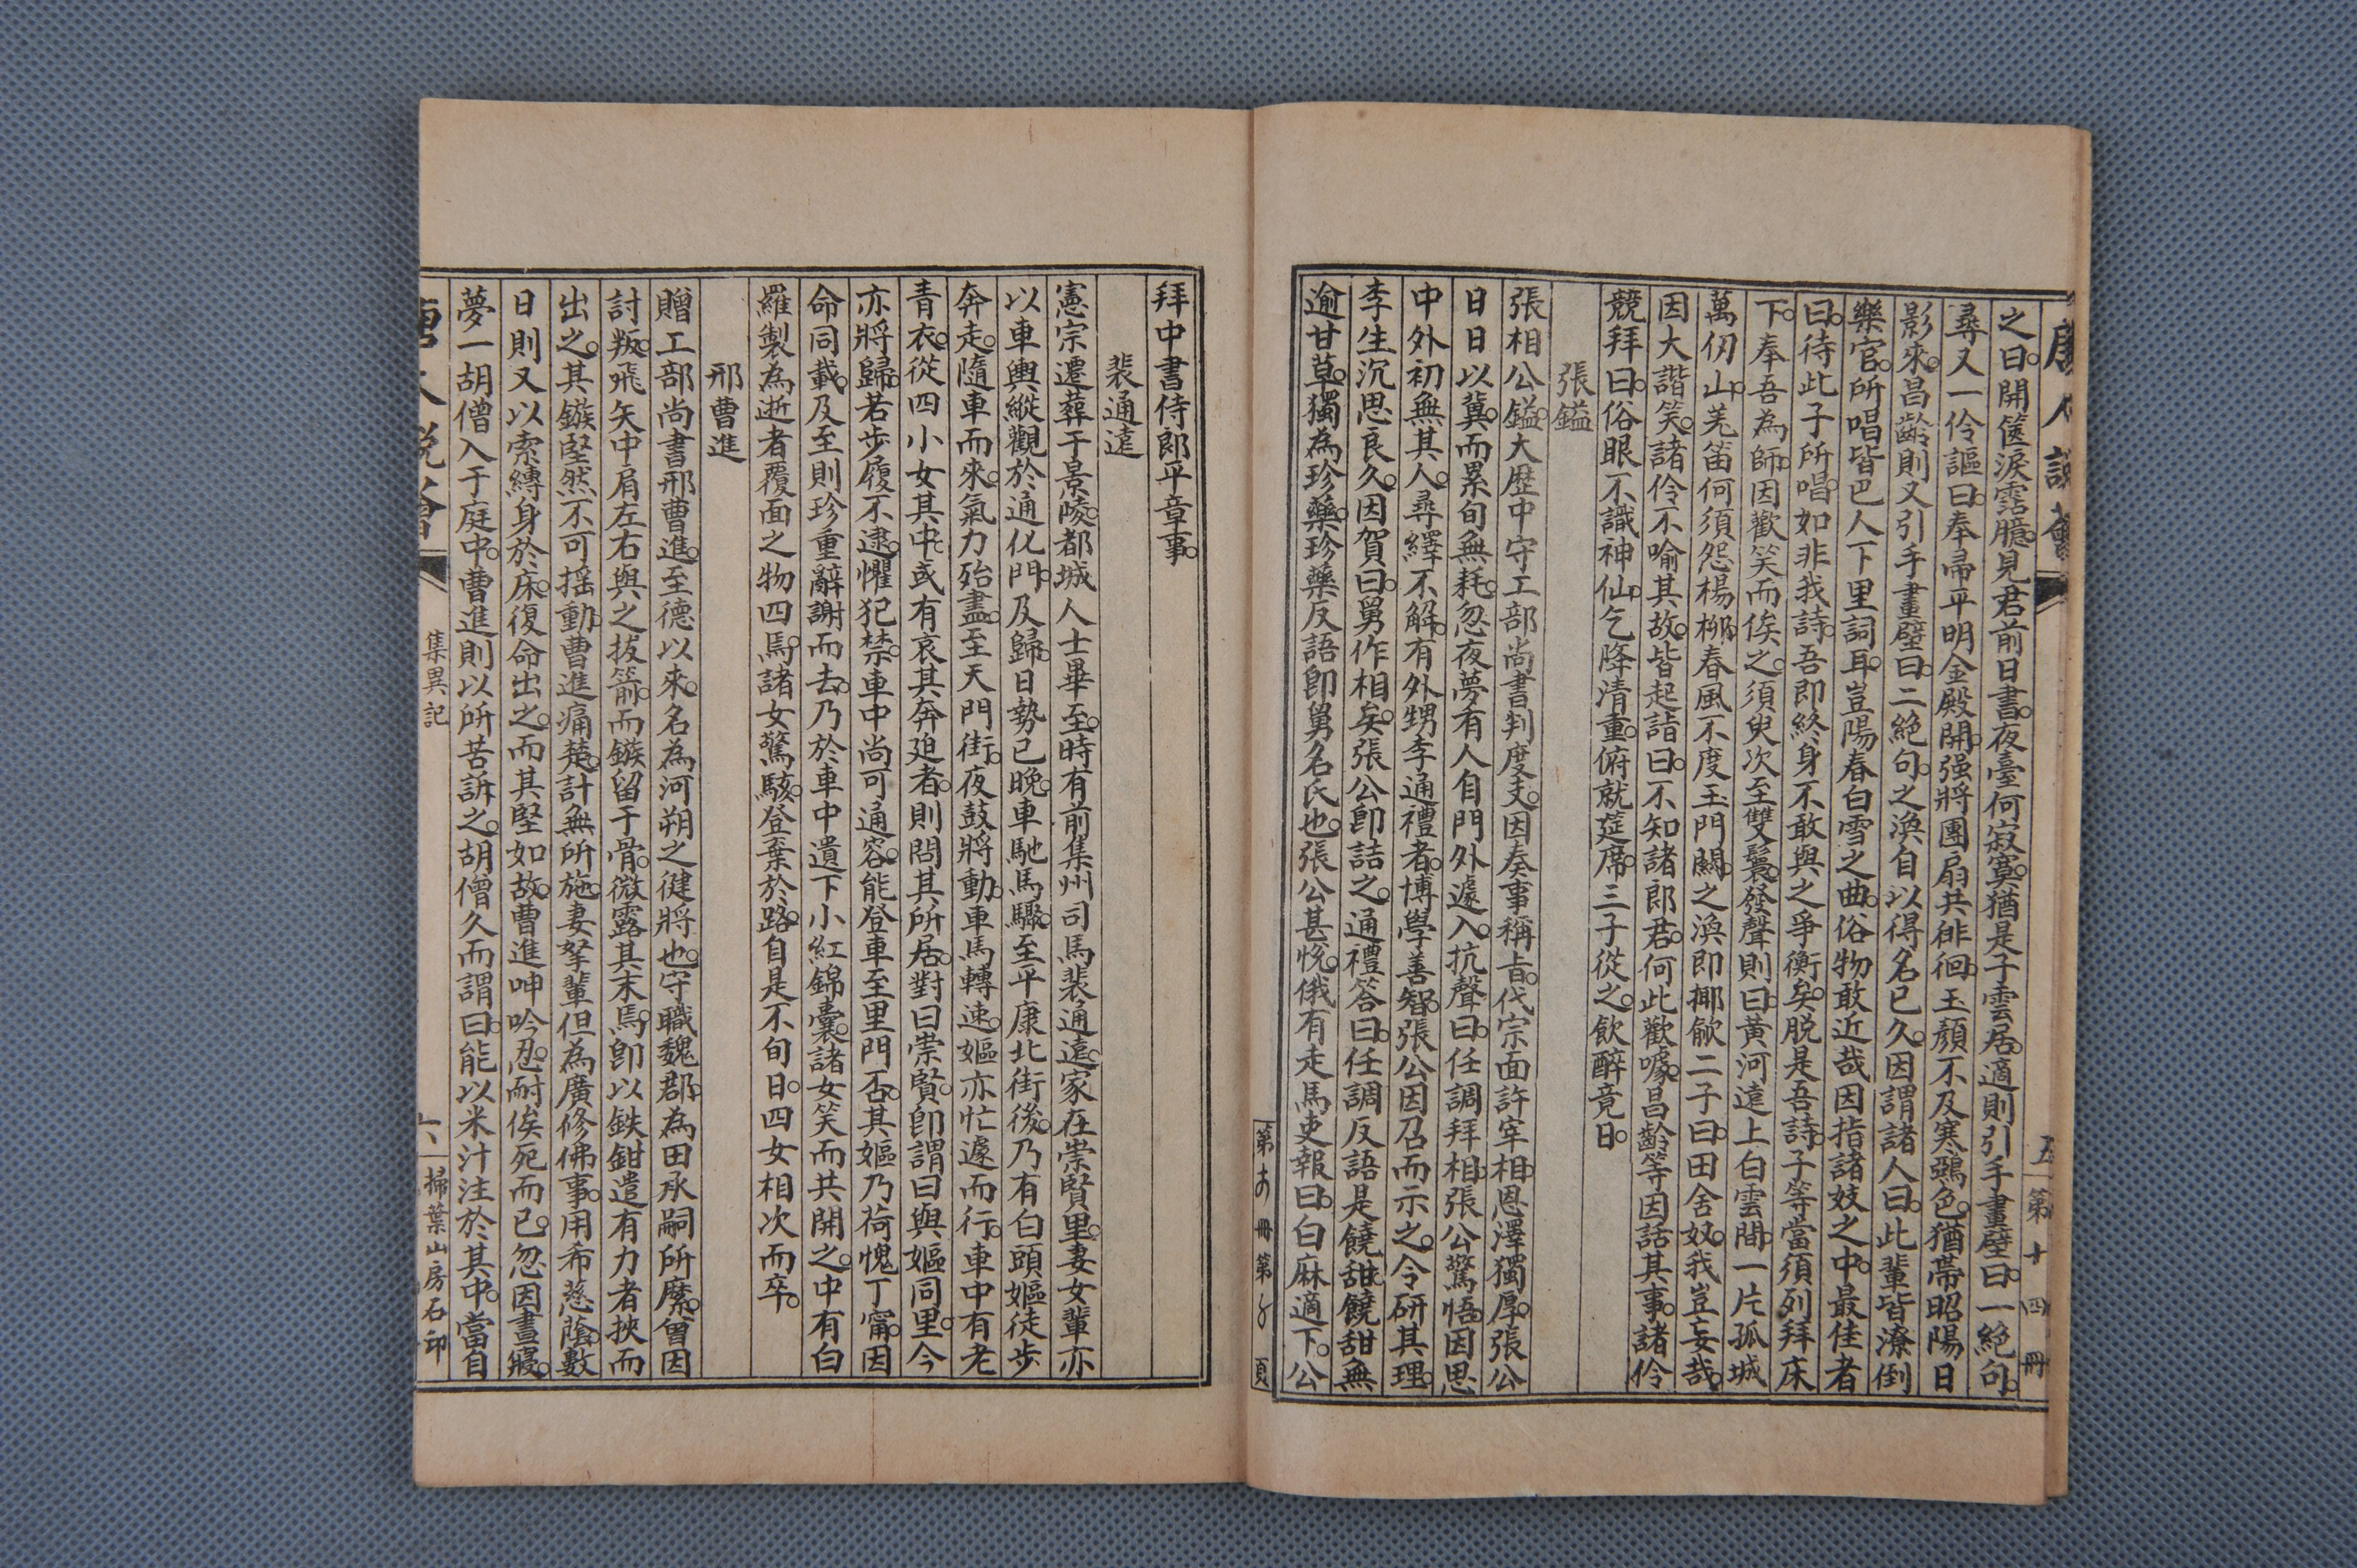 唐人說薈
五
第十四冊
之曰。開篋淚霑臆。見君前日書。夜臺何寂寞。猶是子雲居。適則引手畫壁曰。一絕句。
尋又一伶謳曰。奉帚平明金殿開。强將團扇共徘徊。玉顏不及寒鴉色。猶帶昭陽日
影來。昌齡則又引手畫壁曰。二絕句。之渙自以得名已久。因謂諸人曰。此輩皆潦倒
樂官。所唱皆巴人下里詞耳。豈陽春白雪之曲。俗物敢近哉因指諸妓之中。最佳者
曰。待此子所唱。如非我詩。吾即終身不敢與之爭衡矣。脱是吾詩。子等當須列拜床
下。奉吾為師。因歡笑而俟之。須臾次至雙鬟。發聲則曰。黃河遠上白雲間。一片孤城
萬仞山。羌笛何須怨楊柳。春風不度玉門關。之渙即揶歈二子曰。田舍奴。我豈妄哉。
因大諧笑。諸伶不喻其故。皆起詣曰。不知諸郎君。何此歡噱。昌齡等因話其事。諸伶
競拜曰。俗眼不識神仙。乞降清重。俯就筵席。三子從之。飲醉竟日。
張鎰
張相公鎰。大歷中守工部尚書判度支。因奏事稱旨。代宗面許宰相。恩澤獨厚。張公
日日以冀。而累旬無耗。忽夜夢有人自門外遽入。抗聲曰。任調拜相。張公驚悟。因思
中外初無其人。尋繹不解。有外甥李通禮者。博學善智。張公因召而示之。令研其理。
李生沉思良久。因賀曰。舅作相矣。張公即詰之。通禮答曰。任調反語是饒甜。饒甜無
逾甘草。獨為珍藥。珍藥反語即舅名氏也。張公甚悅。俄有走馬吏報曰。白麻適下。公
拜中書侍郎平章事。
裴通遠
憲宗遷葬于景陵。都城人士畢至。時有前集州司馬裴通遠。家在崇賢里。妻女輩亦
以車輿縱觀於通化門。及歸。日勢已晚。車馳馬驟。至平康北街後。乃有白頭嫗徒步
奔走。隨車而來。氣力殆盡。至天門街。夜鼓將動。車馬轉速。嫗亦忙遽而行。車中有老
青衣。從四小女其中。或有哀其奔迫者。則問其所居。對曰崇賢。即謂曰與嫗同里。今
亦將歸。若步履不逮。懼犯禁。車中尚可通容。能登車至里門否。其嫗乃荷愧丁甯。因
命同載。及至則珍重辭謝而去。乃於車中遺下小紅錦囊。諸女笑而共開之。中有白
羅製為逝者覆面之物四焉。諸女驚駭。登棄於路。自是不旬日。四女相次而卒。
邢曹進
贈工部尚書邢曹進。至德以來。名為河朔之健將也。守職魏郡。為田承嗣所縻。曾因
討叛。飛矢中肩。左右與之拔箭。而鏃留于骨。微露其末焉。即以鉄鉗遣有力者挾而
出之。其鏃堅然不可揺動。曹進痛楚。計無所施。妻孥輩但為廣修佛事。用希慈蔭。數
日則又以索縛身於床。復命出之。而其堅如故。曹進呻吟忍耐俟死而已。忽因晝寢。
夢一胡僧入于庭中。曹進則以所苦訴之。胡僧久而謂曰。能以米汁注於其中。當自
集異記
六
掃葉山房石印